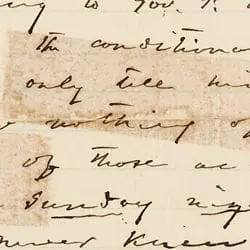 to Gov.
the condition
only till
nothing of
of those
Sunday
never Knew